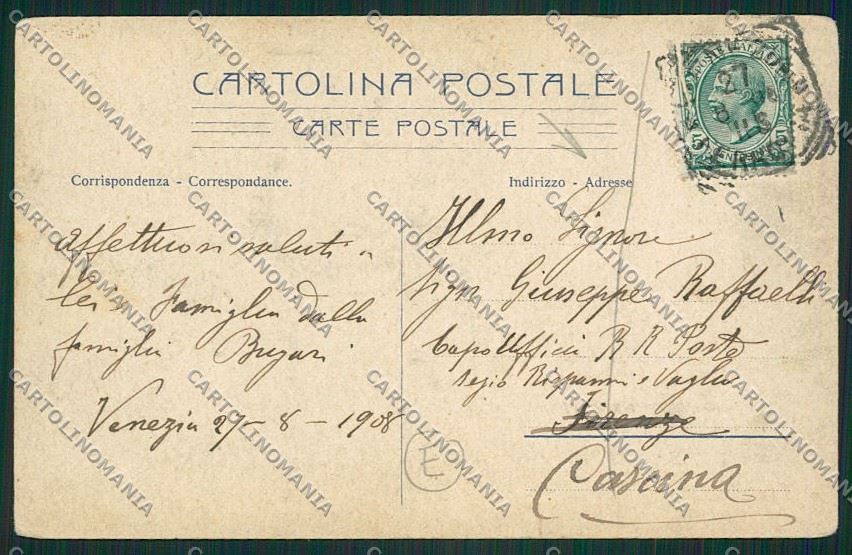 CARTOLINA POSTALE
CARTE POSTALE
Corrispondenza - Correspondance.
Indirizzo - Adresse
Affettuosi saluti a
lei e Famiglia dalla
famiglia
Venezia 27 - 8 - 1908
Illmo Signore
Sign Giuseppe Raffaelli
Capo Uffici R R Poste
Risparmi e Vaglia
Firenze
Cascina
E
27
8
CARTOLINOMANIA